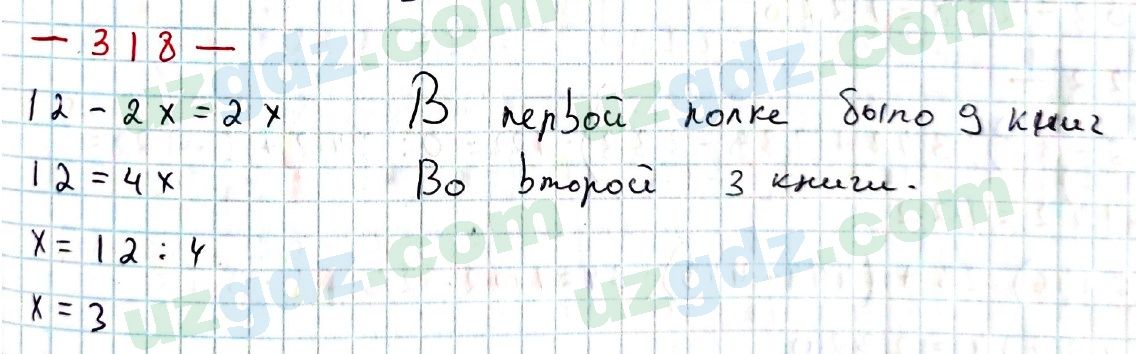 — 318 —
12 - 2x = 2x
12 = 4x
x = 12 : 4
x = 3
В первой полке было 9 книг
Во второй 3 книги.
uzgdz.com
uzgdz.com
uzgdz.com
uzgdz.com